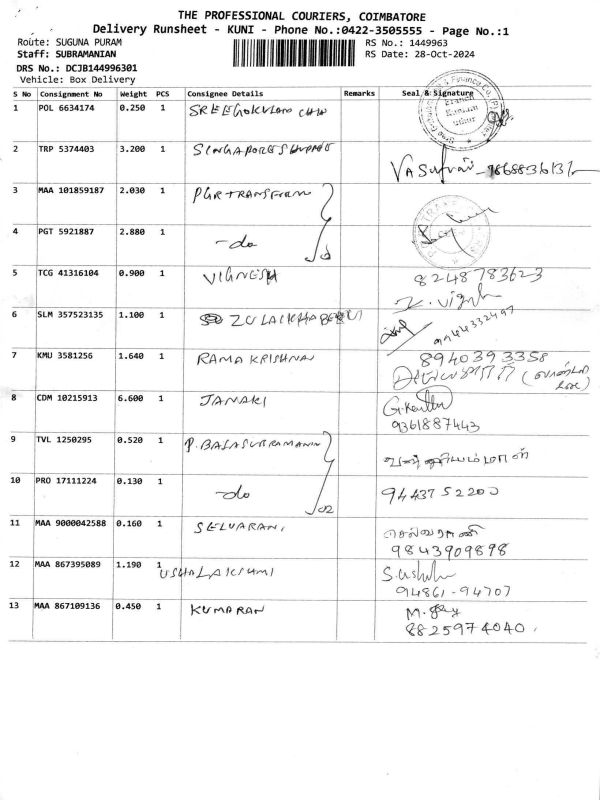 THE PROFESSIONAL COURIERS, COIMBATORE
Delivery Runsheet - KUNI - Phone No.:0422-3505555 - Page No.:1
Route: SUGUNA PURAM
RS No.: 1449963
Staff: SUBRAMANIAN
RS Date: 28-Oct-2024
DRS No.: DCJB144996301
Vehicle: Box Delivery
S No Consignment No Weight PCS Consignee Details Remarks Seal & Signature
1 POL 6634174 0.250 1 SREEGOKULAM
2 TRP 5374403 3.200 1
3 MAA 101859187 2.030 1 PGR TRANSFORM
4 PGT 5921887 2.880 1 -do
5 TCG 41316104 0.900 1 VIGNESH 8248783623
6 SLM 357523135 1.100 1 9944332497
7 KMU 3581256 1.640 1 RAMAKRISHNAN 8940393358
8 CDM 10215913 6.600 1 JANAKI
9361887443
9 TVL 1250295 0.520 1 P. BALASUBRAMANIN
10 PRO 17111224 0.130 1 -do 02 9443752200
11 MAA 9000042588 0.160 1 SELVARANI செல்வராணி
9843909898
12 MAA 867395089 1.190 1 USHALAKSHMI
94861-94707
13 MAA 867109136 0.450 1 KUMARAN
8825974040.